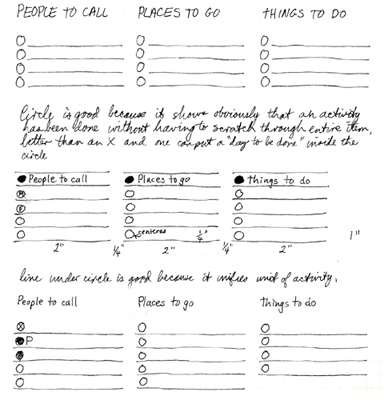 PEOPLE TO CALL PLACES TO GO THINGS TO DO
Circle is good because it shows obviously that an activity
has been done without having to scratch through entire item,
better than an X and one can put a "day to be done" inside the
circle
People to call Places to go Things to do
M
centered 1/4"
2" 1/4" 2" 1/4" 2" 1"
line under circle is good because it unifies unit of activity.
People to call Places to go Things to do
P